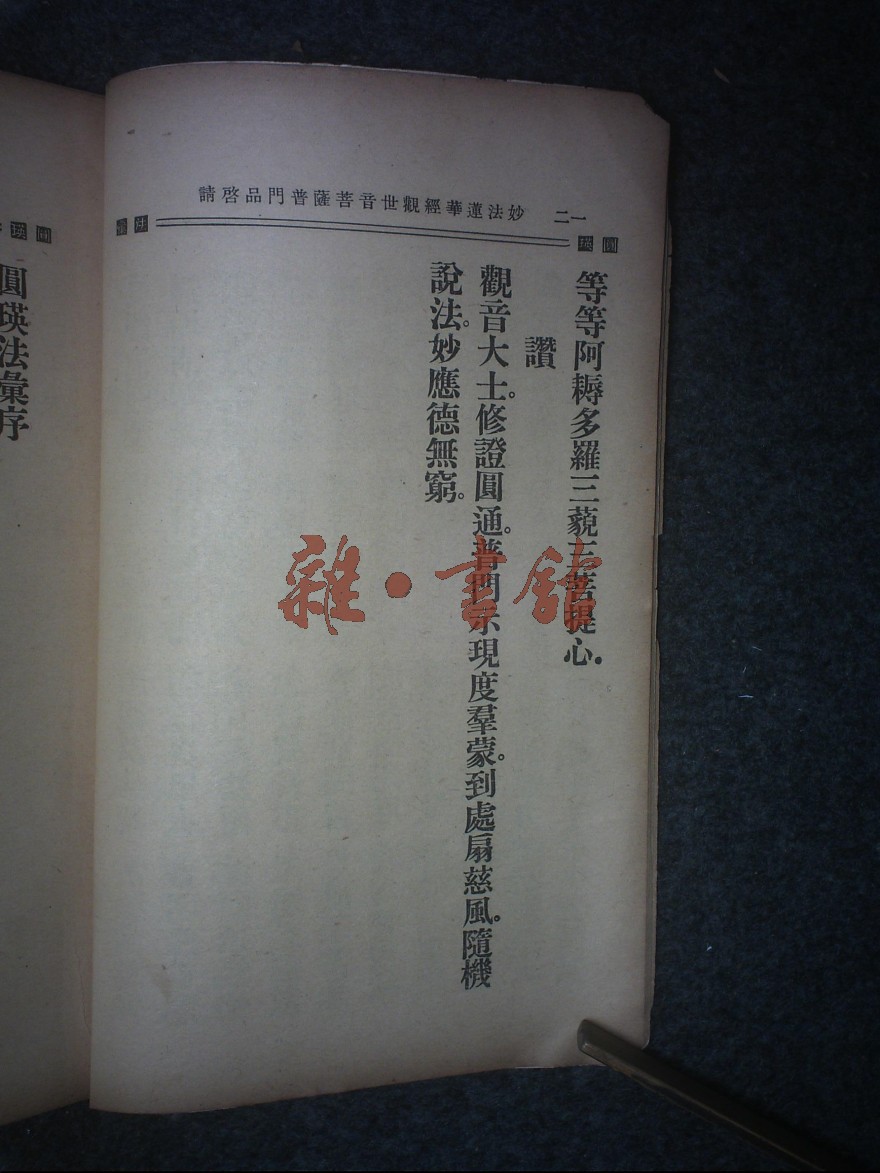 一二 妙法蓮華經觀世音菩薩普門品啓請
圓瑛
法彙
等等阿耨多羅三藐三菩提心．
讚
觀音大士。修證圓通。普門示現度羣蒙。到處扇慈風。隨機
說法。妙應德無窮。
圓瑛
圓瑛法彙序
雜·書館